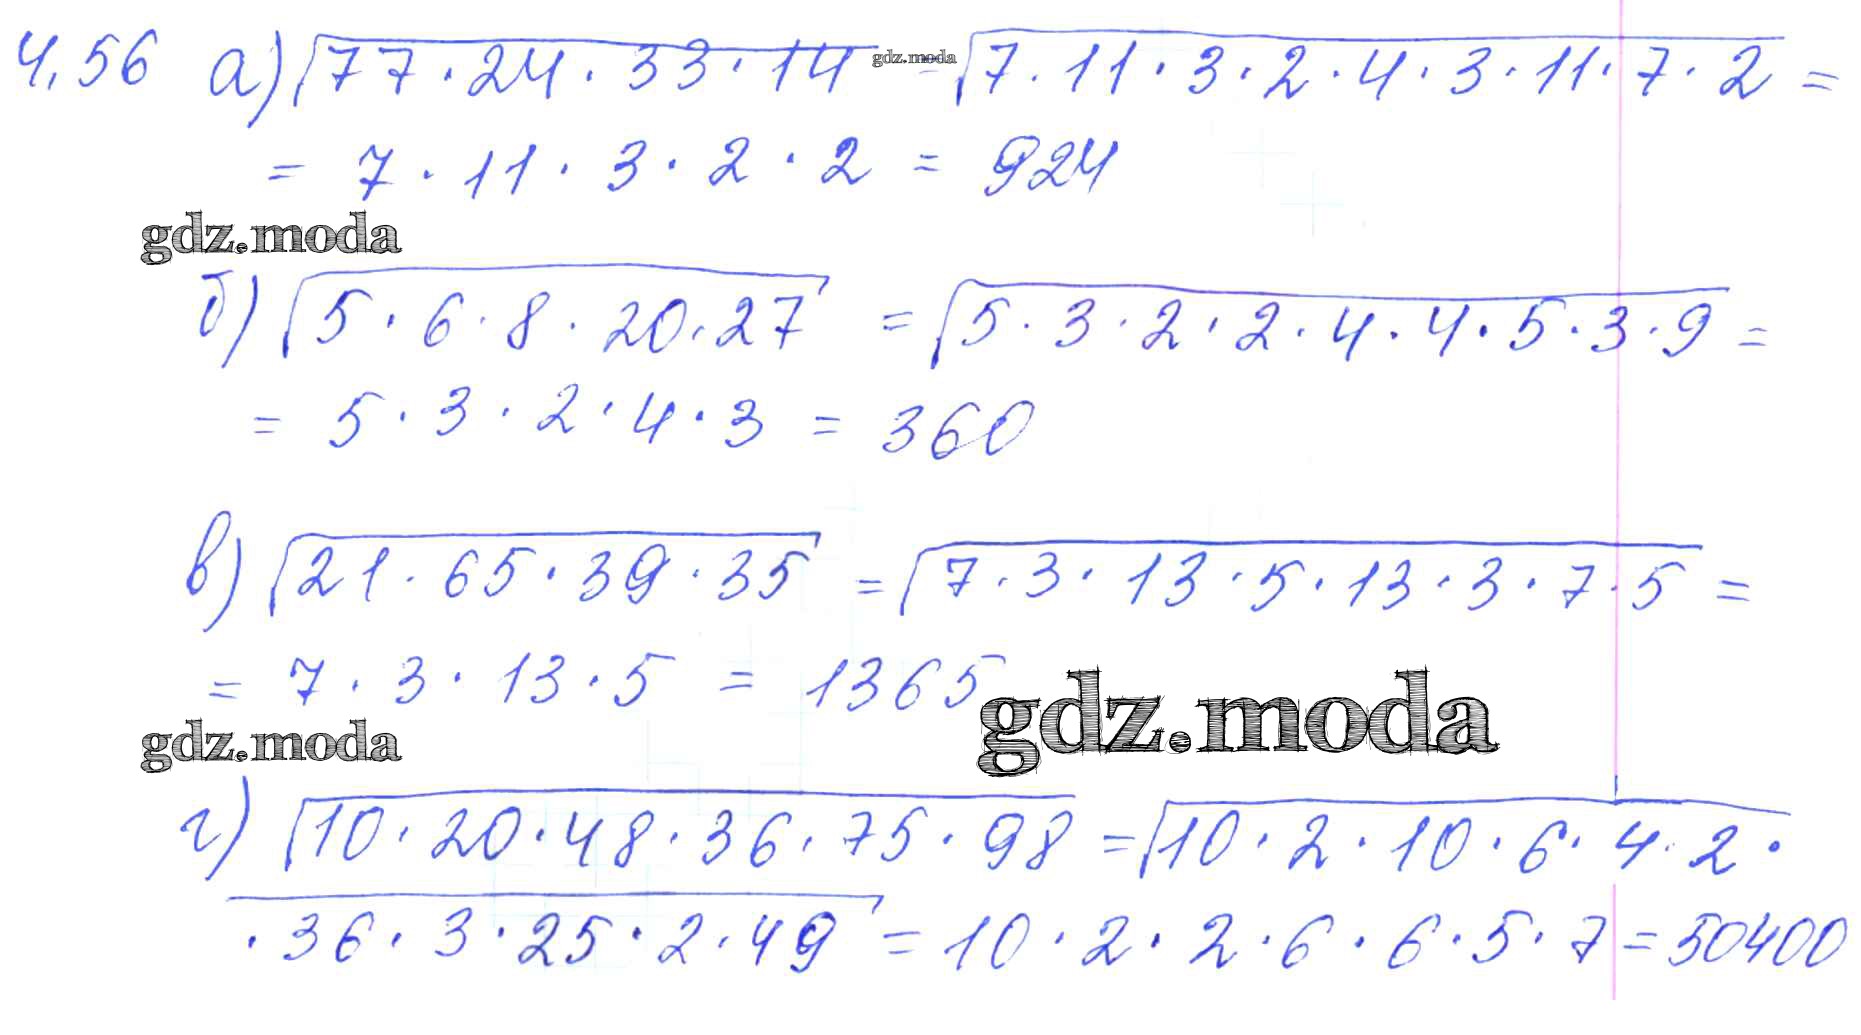 4.56 а) √77·24·33·14 = √7·11·3·2·4·3·11·7·2 =
gdz.moda
= 7·11·3·2·2 = 924
gdz.moda
б) √5·6·8·20·27 = √5·3·2·2·4·4·5·3·9 =
= 5·3·2·4·3 = 360
в) √21·65·39·35 = √7·3·13·5·13·3·7·5 =
= 7·3·13·5 = 1365
gdz.moda
gdz.moda
г) √10·20·48·36·75·98 = √10·2·10·6·4·2·
·36·3·25·2·49 = 10·2·2·6·6·5·7 = 50400